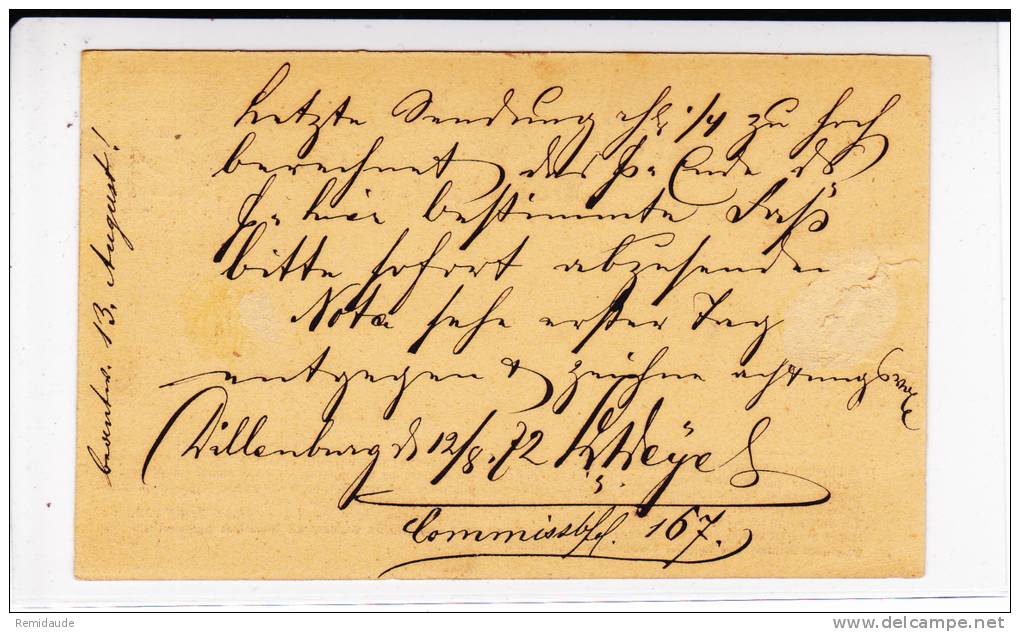 Letzte Sendung 1/4 zu hoch
berechnet das Ende ds
hier bestimmte Faß
bitte sofort abzusenden
Nota sehe erster Tag
entgegen & zeichne achtungsvoll
Dillenburg d 12/8. 72
Commissbf. 167.
beantw. 13. August!
Remidaude
www.delcampe.net